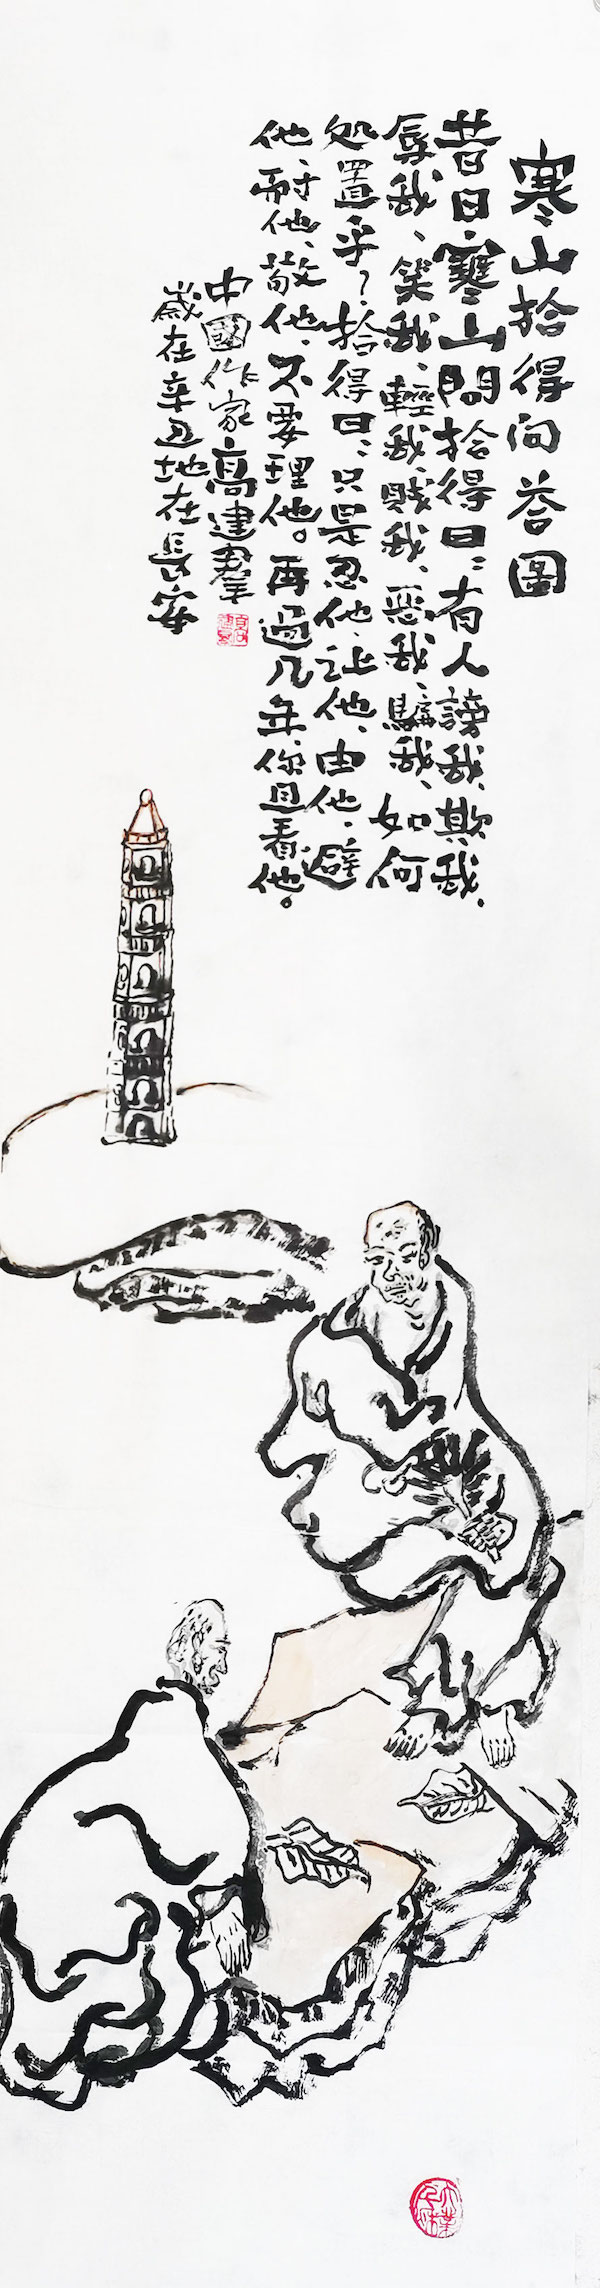 寒山拾得问答圖
昔日寒山問拾得曰:有人謗我、欺我、
辱我、笑我、輕我、賤我、惡我、騙我、如何
处置乎?拾得曰:只是忍他、让他、由他、避
他、耐他、敬他、不要理他。再過几年、你且看他。
中國作家高建群
歲在辛丑地在長安